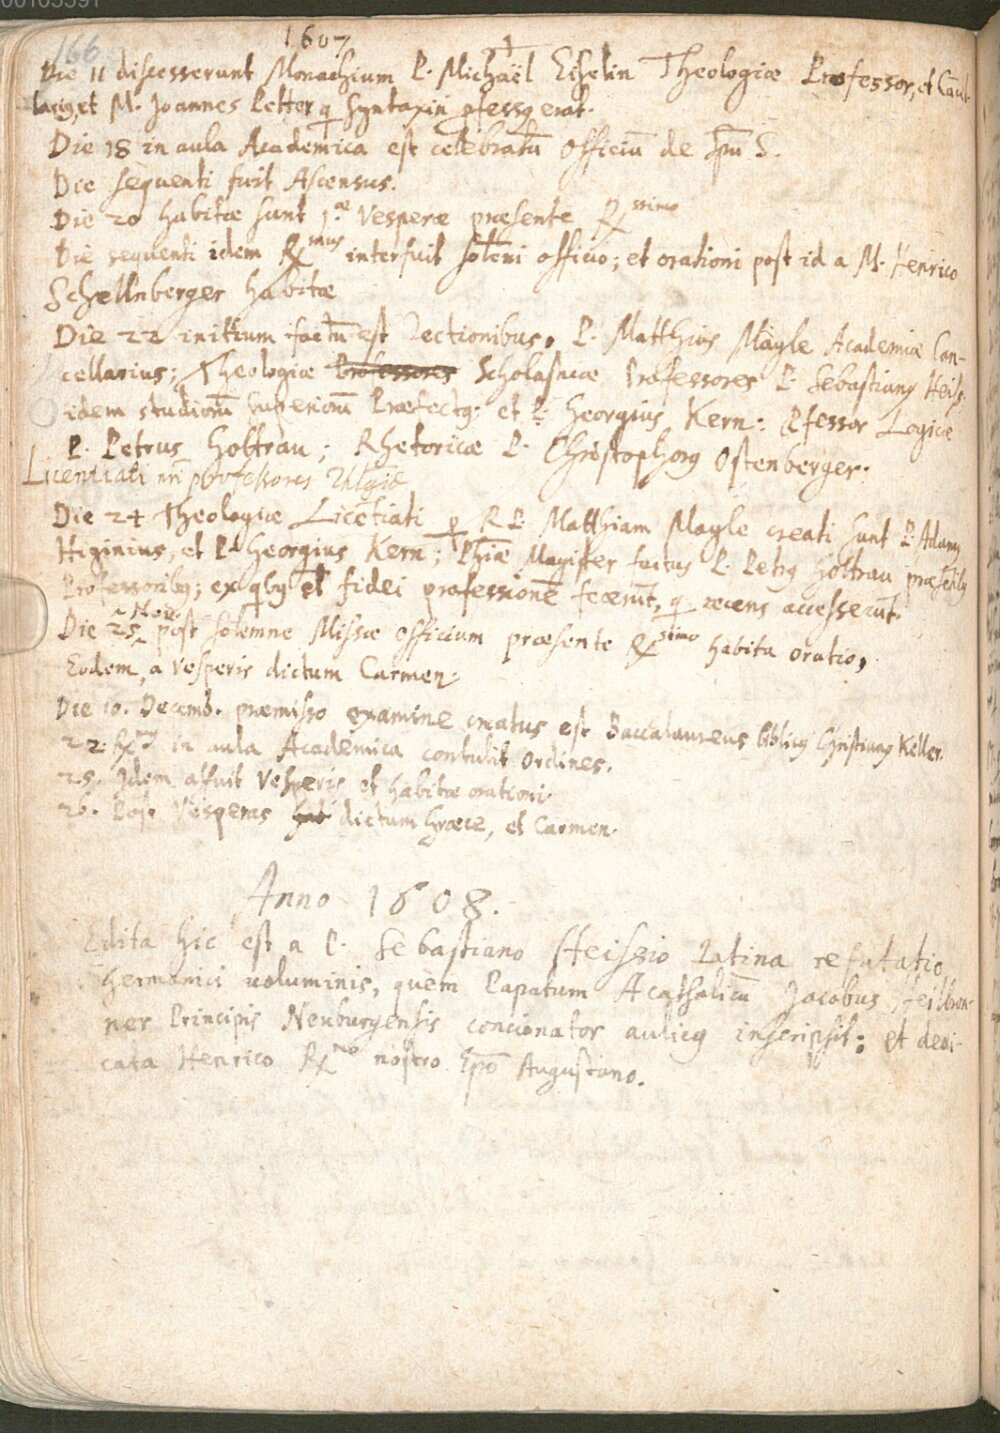 00103391
166
1607
Die 11 discesserunt Monachium P. Michaël Eiselin Theologiæ Professor, et Can-
larig, et M. Joannes Petter q Syntaxin pfessq erat.
Die 18 in aula Academica est celebratū Officiū de Spū S.
Die sequenti fuit Ascensus.
Die 20 habitæ sunt 1.ae Vesperæ præsente Rssimo
Die sequenti idem Rmus interfuit solēni officio; et orationi post id a M. Henrico
Schellnberger habitæ
Die 22 initium factū est Lectionibus. P. Matthias Mayle Academiæ Can-
cellarius; Theologiæ Professores Scholasticæ Professores P. Sebastiang Heiss.
idem studiorū superiorū Præfectg: et P. Georgius Kern: Pfessor Logicæ
P. Petrus Holtrau; Rhetoricæ P. Christophorg Ostenberger.
Licentiati nri professores Thlgiæ
Die 24 Theologiæ Licētiati p R P. Matthiam Mayle creati sunt P. Adamg
Higinius, et P. Georgius Kern; Phiæ Magister factus P. Petrg Holtrau præsētibg
Professoribg; ex qbg et fidei professionē fecerūt, q recens accesserūt.
Nov.
Die 25 post solemne Missæ officium præsente Rssimo habita oratio,
Eodem, a vesperis dictum Carmen.
Die 10. Decemb. præmisso examine creatus est Baccalaureus biblicg Christiang Keller.
22. Rmg in aula Academica contulit Ordines.
25. Idem affuit Vesperis et habitæ orationi.
26. Post Vesperas hab dictum Græce, et Carmen.
Anno 1608.
Edita hic est a P. Sebastiano Heissio Latina refutatio
Germanici voluminis, quem Papatum Acatholicū Jacobus Heilbron-
ner Principis Neuburgensis concionator aulicg inscripsit; et dedi-
cata Henrico Rmo nostro Epō Augustano.